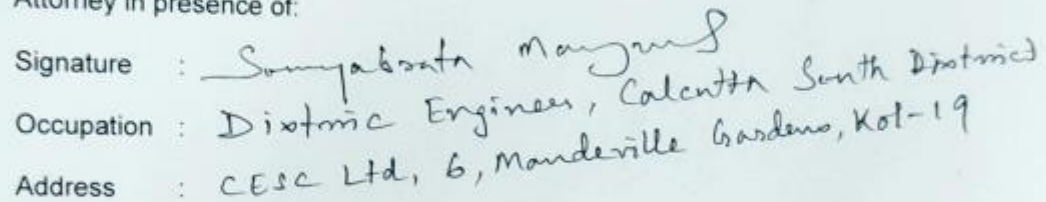 Attorney in presence of:
Signature : Somyabrata
Occupation : Distric Engineer, Calcutta South District
Address : CESC Ltd, 6, Mandeville Gardens, Kol-19